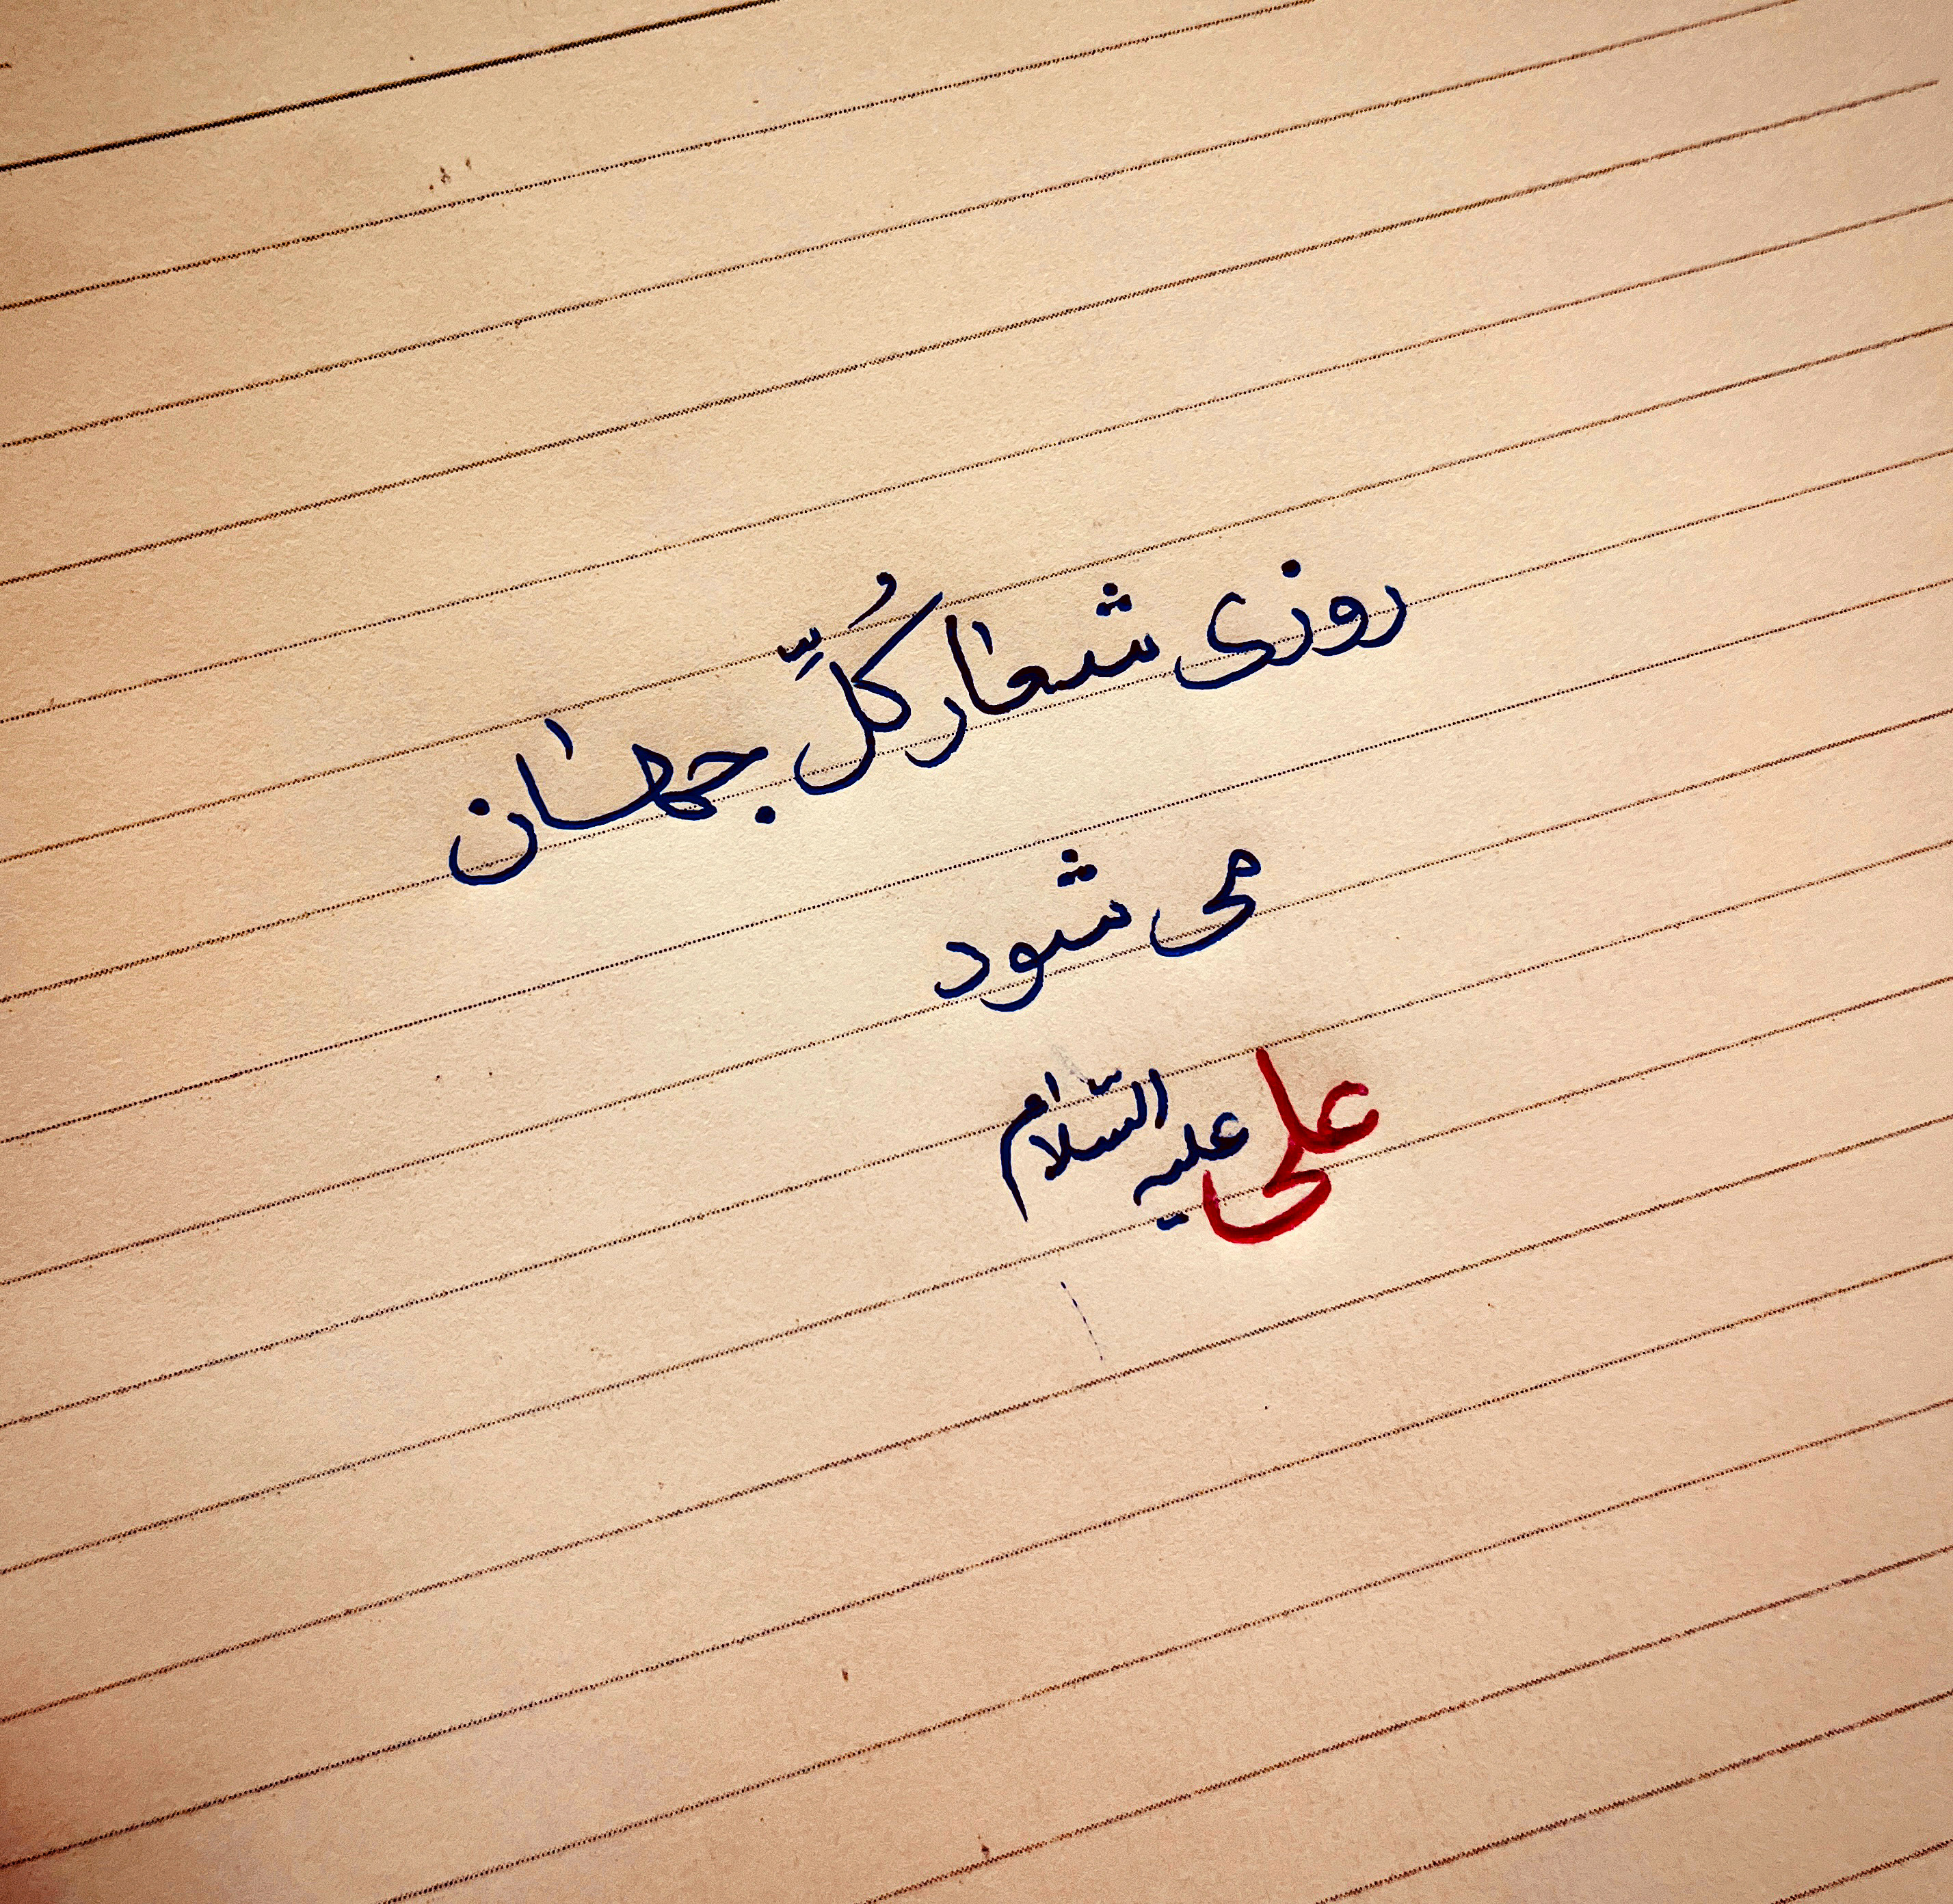 روزی شعار کُلِّ جهان
می شود
علی علیه السّلام